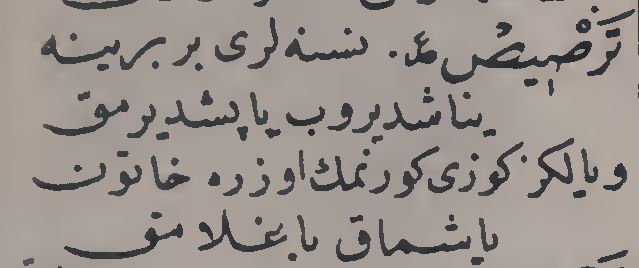 تَرْصِيصْ ع. نسنه لرى بر برينه
يناشديروب ياپشديرمق
ويالكز كوزى كورنمك اوزره خاتون
ياشماق باغلامق